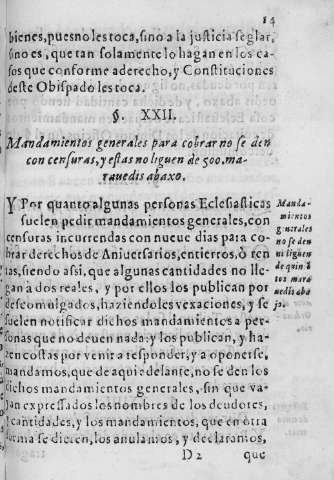 14
bienes, pues no les toca, sino a la justicia seglar,
sino es, que tan solamente lo hagan en los ca-
sos que conforme a derecho, y Constituciones
deste Obispado les toca.
§. XXII.
Mandamientos generales para cobrar no se den
con censuras, y estas no liguen de 500. ma-
rauedis abaxo.
Y Por quanto algunas personas Eclesiasticas
suelen pedir mandamientos generales, con
censuras incurrendas con nueue dias para co-
brar derechos de Aniuersarios, entierros, ò ren
tas, siendo assi, que algunas cantidades no lle-
gan a dos reales, y por ellos los publican por
descomulgados, haziendoles vexaciones, y se
suelen notificar dichos mandamientos a per-
sonas que no deuen nada: y los publican, y ha-
zen costas por venir a responder, y a oponerse,
mandamos, que de aqui edelante, no se den los
dichos mandamientos generales, sin que va-
yan expressados los nombres de los deudores,
y cantidades, y los mandamientos, que en otra
forma se dieren, los anulamos, y declaramos,
D 2 que
Manda-
mientos
generales
no se den
ni liguen
de quin ẽ
tos mara
uedis aba
jo.